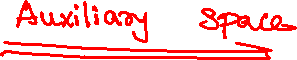 Auxiliary space